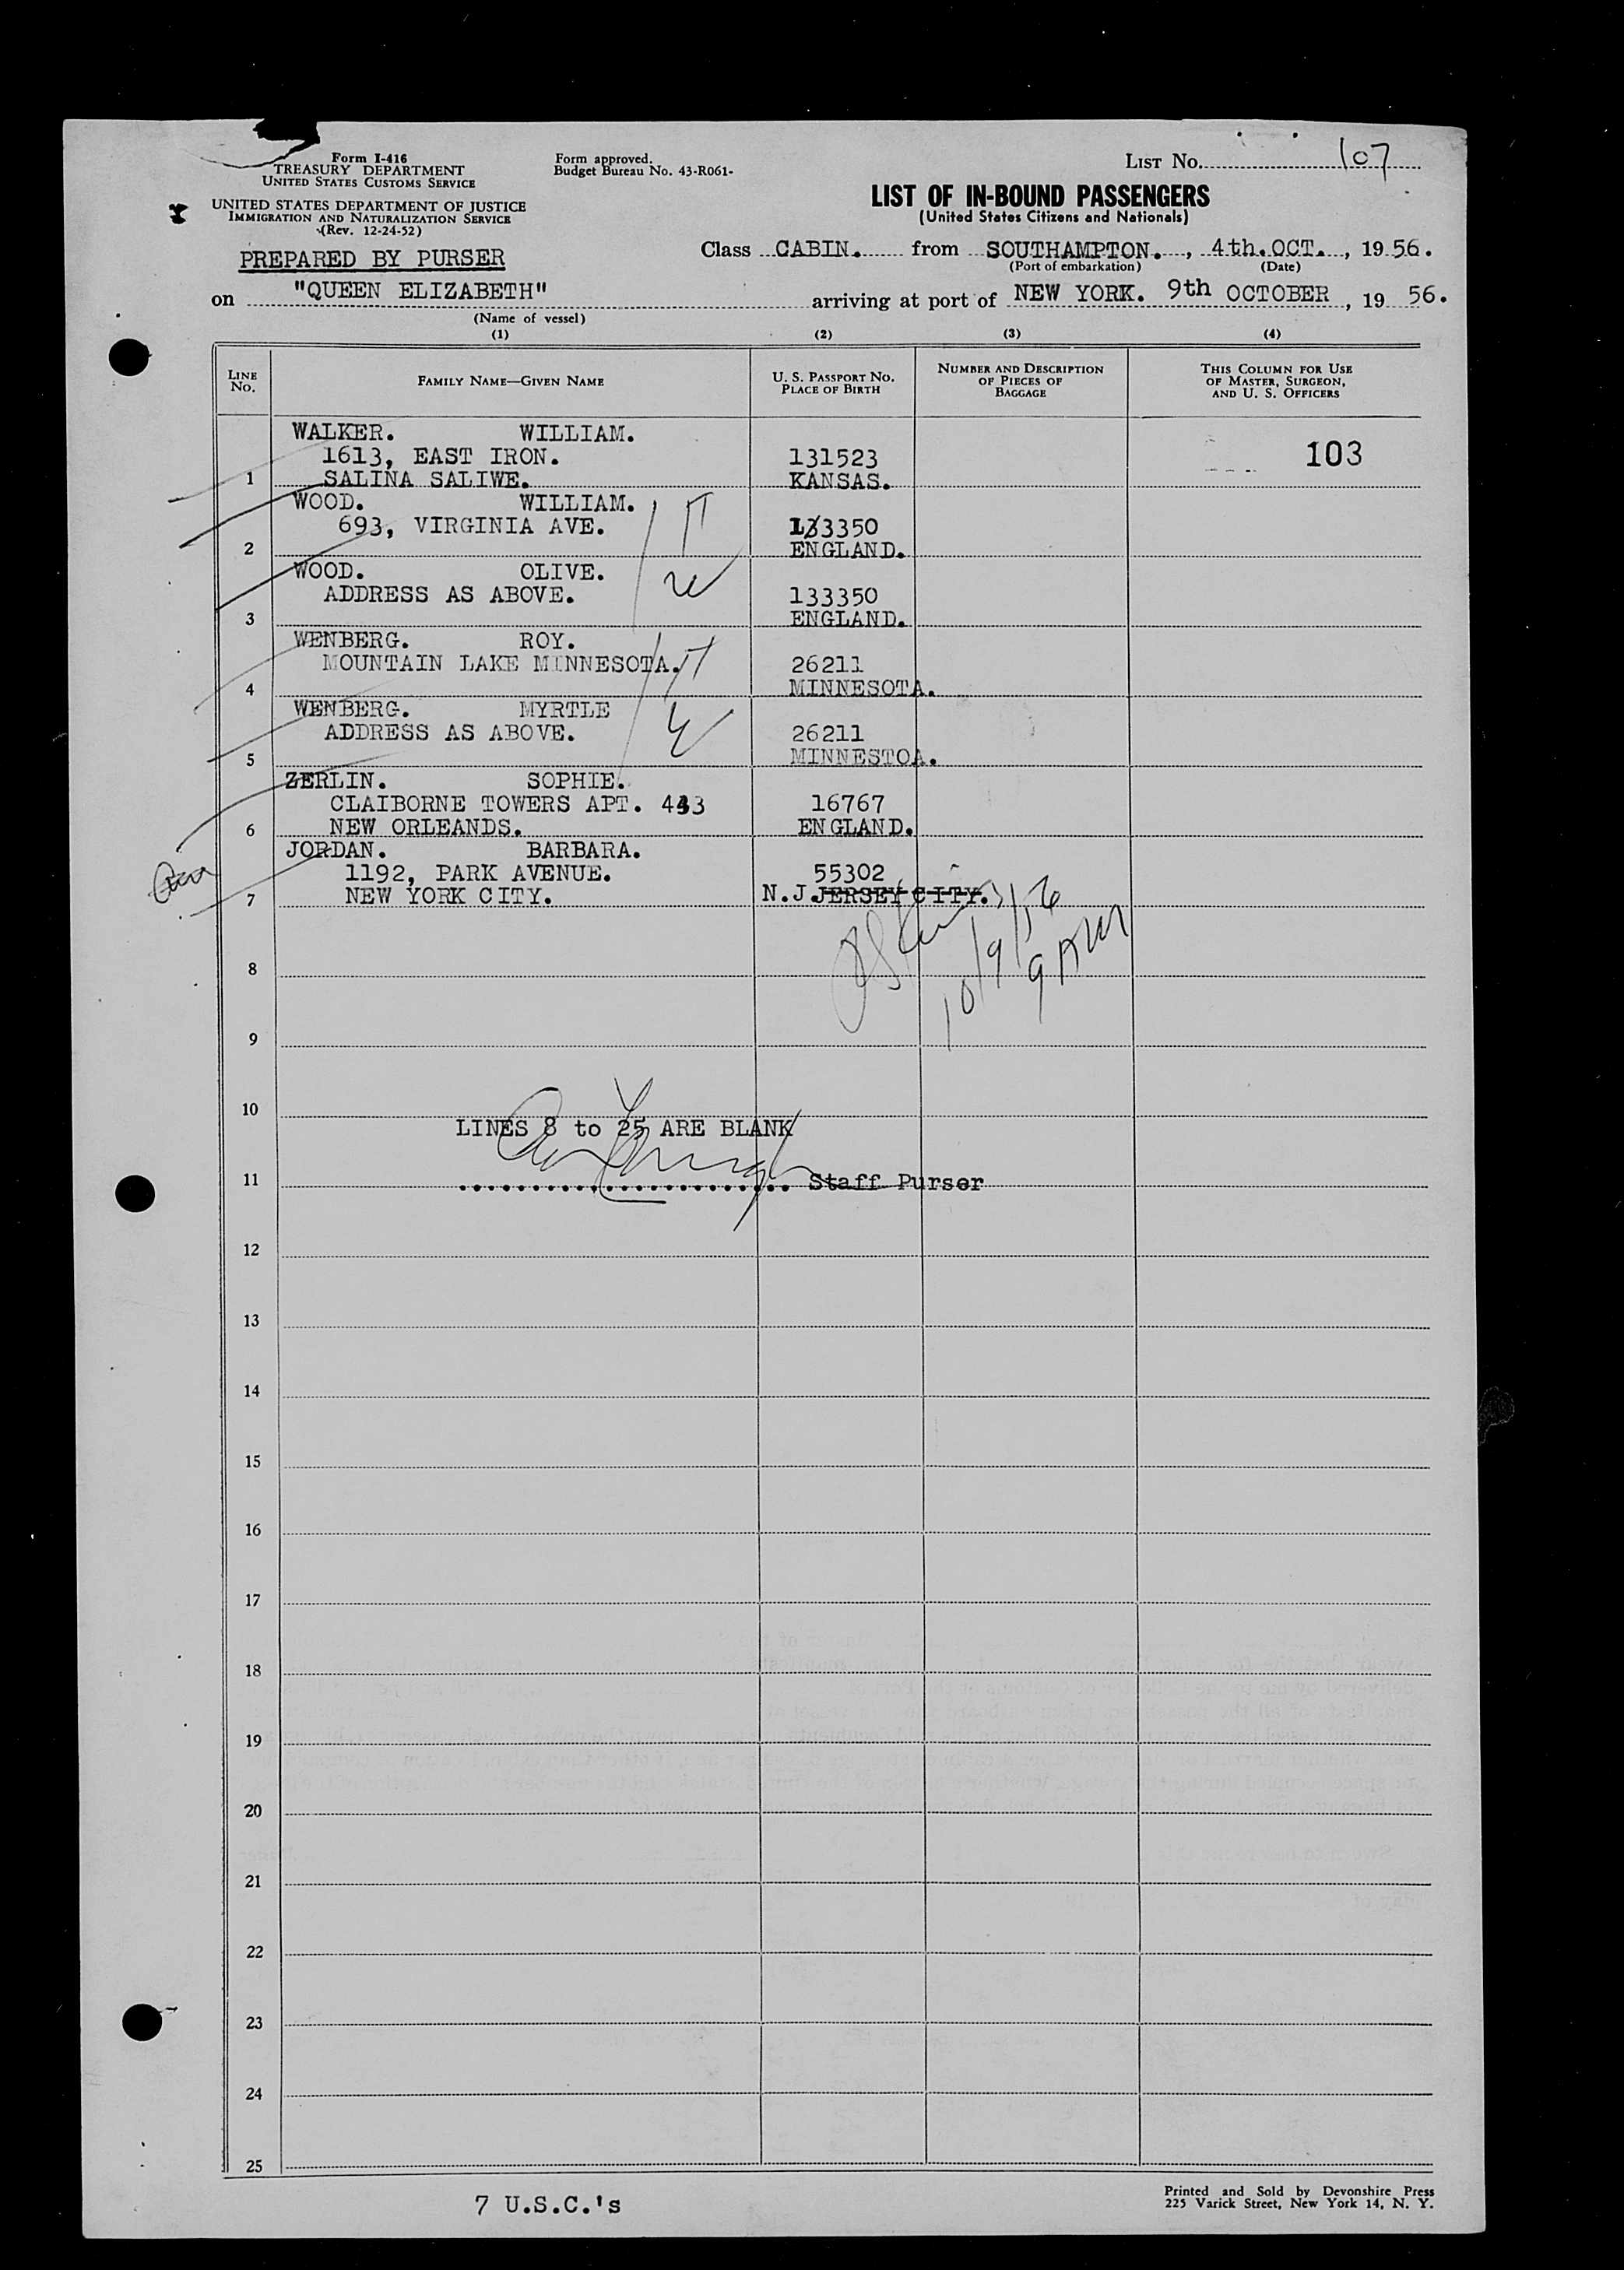 Form I-416
TREASURY DEPARTMENT
UNITED STATES CUSTOMS SERVICE
UNITED STATES DEPARTMENT OF JUSTICE
IMMIGRATION AND NATURALIZATION SERVICE
(Rev. 12-24-52)
PREPARED BY PURSER
Form approved.
Budget Bureau No. 43-R061-
LIST No. 107
LIST OF IN-BOUND PASSENGERS
(United States Citizens and Nationals)
Class CABIN. from SOUTHAMPTON., 4th.OCT., 1956.
(Port of embarkation) (Date)
on "QUEEN ELIZABETH" arriving at port of NEW YORK. 9th OCTOBER, 19 56.
(Name of vessel)
(1) (2) (3) (4)
LINE No.
FAMILY NAME—GIVEN NAME
U. S. PASSPORT No.
PLACE OF BIRTH
NUMBER AND DESCRIPTION
OF PIECES OF
BAGGAGE
THIS COLUMN FOR USE
OF MASTER, SURGEON,
AND U. S. OFFICERS
WALKER. WILLIAM.
1613, EAST IRON. 131523 103
1 SALINA SALIWE. KANSAS.
WOOD. WILLIAM.
693, VIRGINIA AVE. 133350
2 ENGLAND.
WOOD. OLIVE.
ADDRESS AS ABOVE. 133350
3 ENGLAND.
WENBERG. ROY.
MOUNTAIN LAKE MINNESOTA. 26211
4 MINNESOTA.
WENBERG. MYRTLE
ADDRESS AS ABOVE. 26211
5 MINNESTOA.
ZERLIN. SOPHIE.
CLAIBORNE TOWERS APT. 443 16767
6 NEW ORLEANDS. ENGLAND.
JORDAN. BARBARA.
1192, PARK AVENUE. 55302
7 NEW YORK CITY. N.J.JERSEY CITY.
10/9/56
9 AM
8
9
10
LINES 8 to 25 ARE BLANK
11 Staff Purser
12
13
14
15
16
17
18
19
20
21
22
23
24
25
7 U.S.C.'s
Printed and Sold by Devonshire Press
225 Varick Street, New York 14, N. Y.